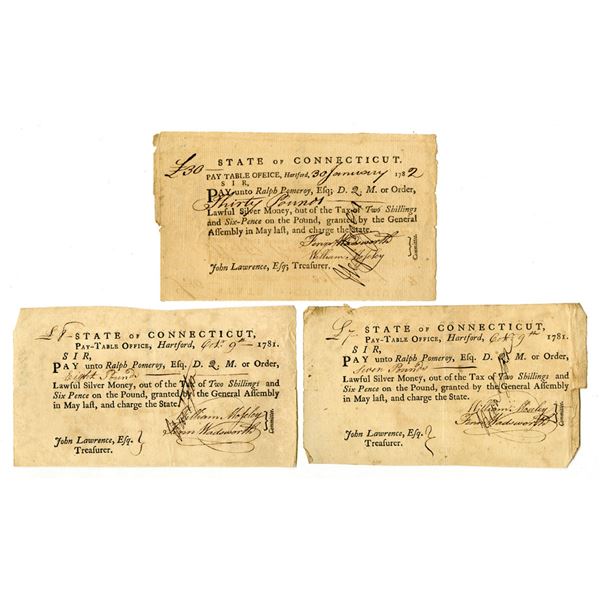 £30
STATE OF CONNECTICUT.
PAY TABLE OFFICE, Hartford, 30 January 1782
SIR,
PAY unto Ralph Pomeroy, Esq; D. Q. M. or Order,
Thirty Pounds
Lawful Silver Money, out of the Tax of Two Shillings
and Six-Pence on the Pound, granted by the General
Assembly in May last, and charge the State.
Fenn Wadsworth
William Moseley
Committee.
John Lawrence, Esq; Treasurer.
£8
STATE OF CONNECTICUT,
PAY-TABLE OFFICE, Hartford, Oct. 9th 1781.
SIR,
PAY unto Ralph Pomeroy, Esq. D. Q. M. or Order,
Eight Pounds
Lawful Silver Money, out of the Tax of Two Shillings and
Six Pence on the Pound, granted by the General Assembly
in May last, and charge the State.
William Moseley
Fenn Wadsworth
Committee.
John Lawrence, Esq.
Treasurer.
£7
STATE OF CONNECTICUT,
PAY-TABLE OFFICE, Hartford, Oct. 9th 1781.
SIR,
PAY unto Ralph Pomeroy, Esq. D. Q. M. or Order,
Seven Pounds
Lawful Silver Money, out of the Tax of Two Shillings and
Six Pence on the Pound, granted by the General Assembly
in May last, and charge the State.
William Moseley
Fenn Wadsworth
Committee.
John Lawrence, Esq.
Treasurer.